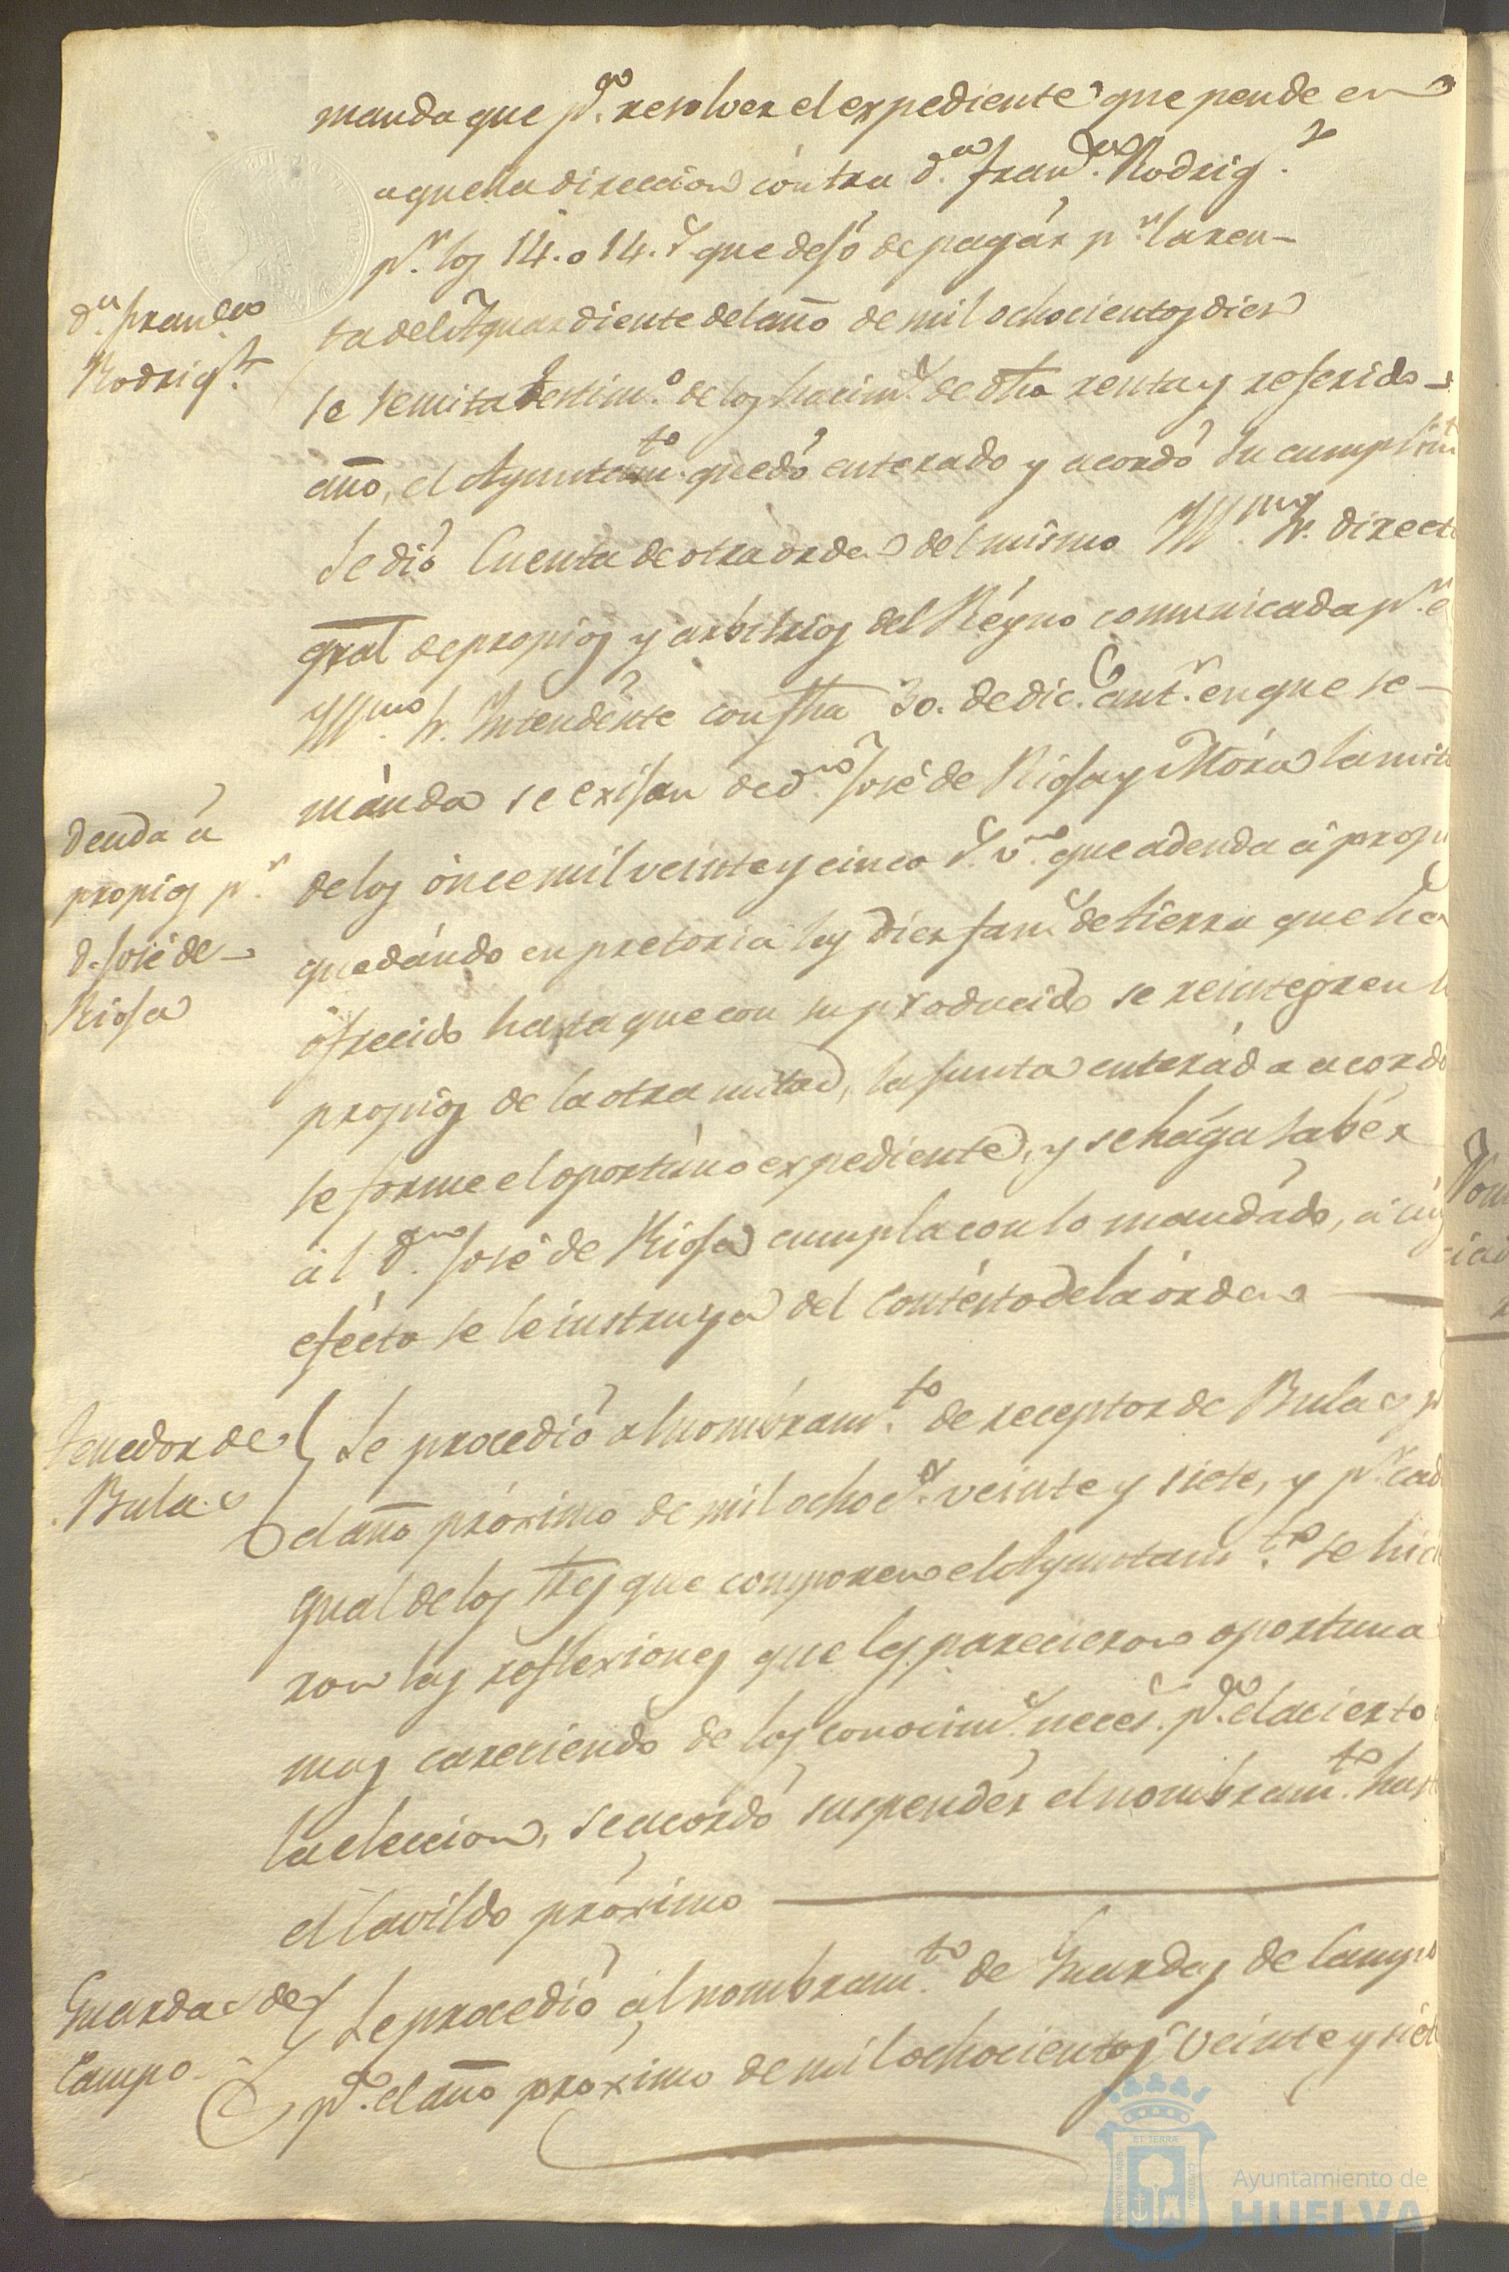 manda que p.ª resolver el expediente que pende en
aquella direccion contra d.ª Fran.ca Rodrig.z
p.r los 14.o 14. r.s que dejó de pagár p.r la ren-
d.a Fran.ca
Rodrig.z
ta del Aguardiente del año de mil ochocientos diez
se remita testim.o de los hacim.s de dha renta y referido
año, el Ayuntam.to quedó enterado y acordó su cumplim.t
Se dió Cuenta de otra orden del mismo Yll.mo Sr. direct
gral de propios y arbitrios del Reyno comunicada p.r e
Yll.mo Sr. Intendente con fha 30. de dic.e ant.r en que se
mánda se exijan de d.n José de Rioja y Móra la mita
deuda á
propios p.r
d. José de
Rioja
de los once mil veinte y cinco r.s v.n que adeuda á propi
quedándo en pretoria las diez fan.s de tierra que ha
ofrecido hasta que con su producido se reintegren
propios de la otra mitad, la junta enteráda acordó
se forme el oportúno expediente, y se hága sabér
ál d.n José de Rioja cumpla con lo mandádo, á cuy
efécto se le instruya del contésto de la órden
Tenedor de
Bulas
Se procedió al nombram.to de receptor de Bulas p
el año próximo de mil ochoc.s veinte y siete, y p.r cad
qual de los Sres que componen el Ayuntam.to se hicie
ron las reflexiones que les parecieron oportuna
mas careciendo de los conocim.s neces.s p.ª el acierto
la eleccion, se acordó suspendér el nombram.to hast
el Cavildo próximo
Guardas de
Campo
Se procedió ál nombram.to de Guardas de Campo
p.ª el año próximo de mil ochocientos veinte y siete
Ayuntamiento de
HUELVA